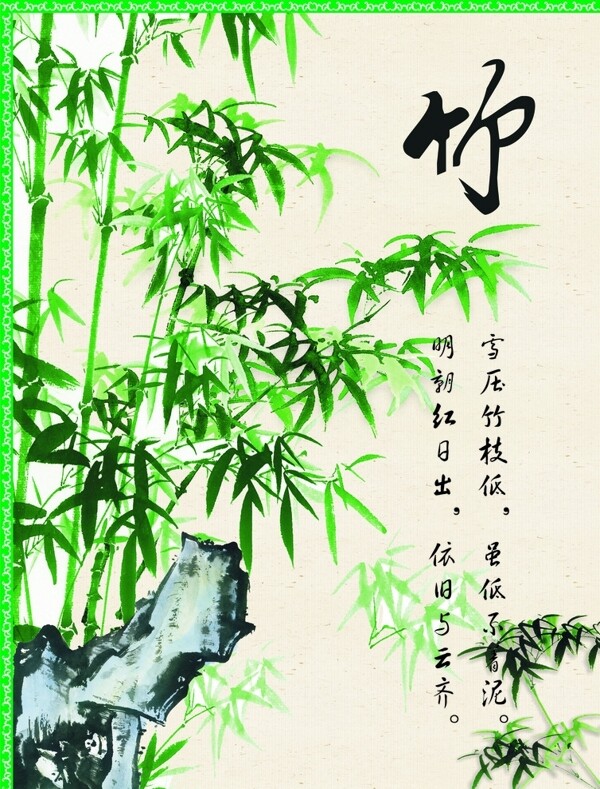 竹
雪压竹枝低，虽低不着泥。
明朝红日出，依旧与云齐。